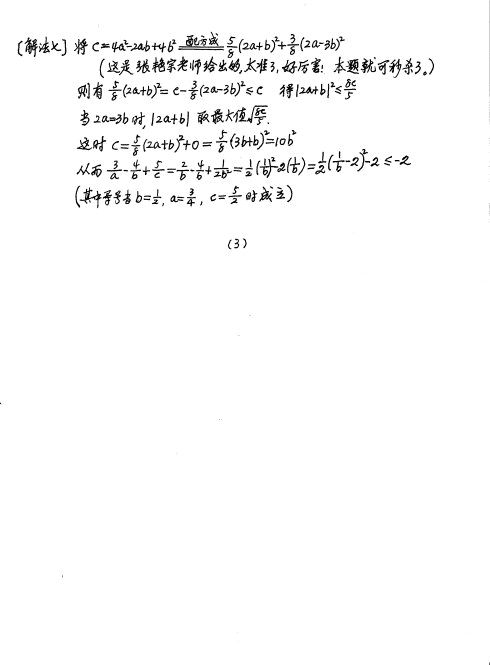 〔解法乂〕将 c=4a²-2ab+4b² 配方成 5/8(2a+b)²+3/8(2a-3b)²
(这是张艳宗老师给出的,太难了,好厉害!本题就可秒杀了。)
则有 5/8(2a+b)²=c-3/8(2a-3b)²≤c 得|2a+b|²≤8c/5
当2a=3b时,|2a+b|取最大值√8c/5.
这时 c=5/8(2a+b)²+0=5/8(3b+b)²=10b²
从而 3/a-4/b+5/c=2/b-4/b+1/2b²=1/2(1/b)²-2(1/b)=1/2(1/b-2)²-2≤-2
(其中等号当b=1/2,a=3/4,c=5/2时成立)
(3)